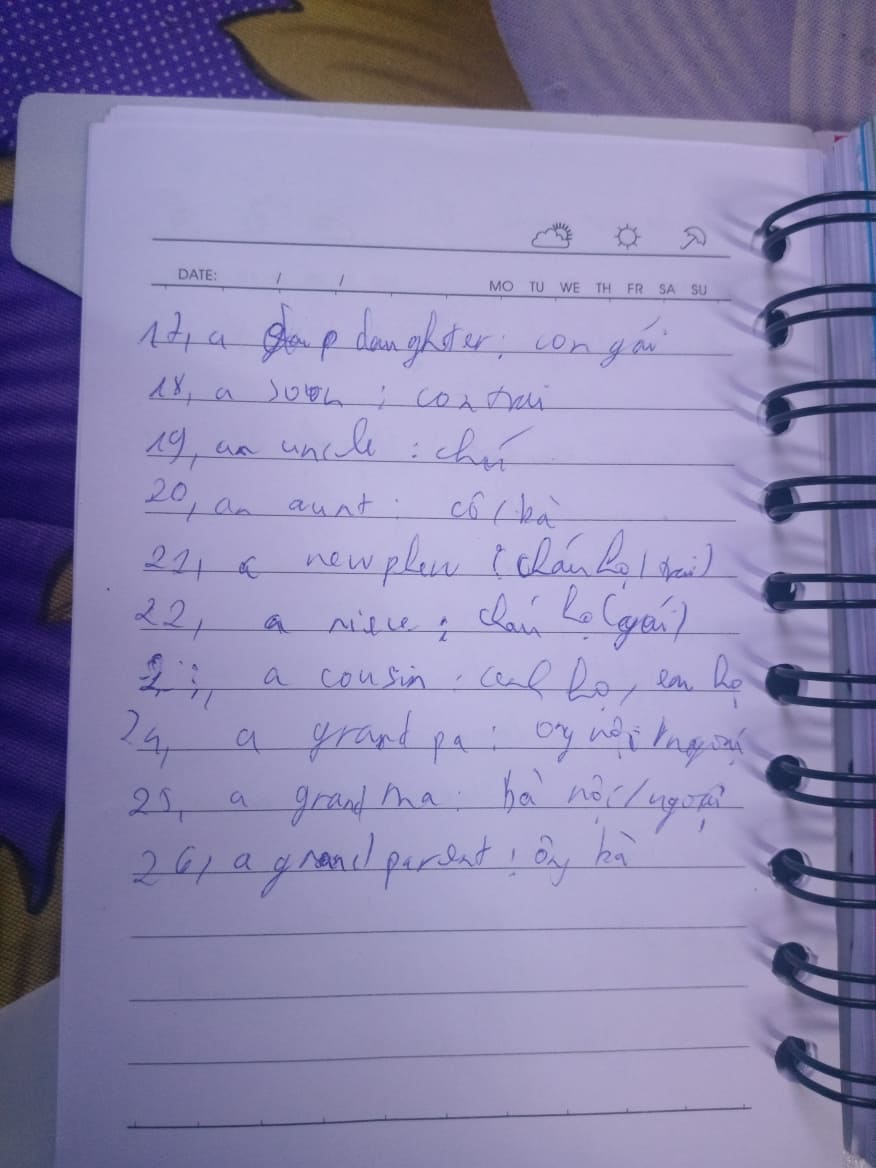 DATE: / /
MO TU WE TH FR SA SU
17, a daughter: con gái
18, a soon : con trai
19, an uncle : chú
20, an aunt : cô / bà
21, a newphew : (cháu họ / trai)
22, a niece : cháu họ (gái)
a cousin : họ, em họ
24, a grand pa : ông nội / ngoại
25, a grand ma : bà nội / ngoại
26, a grand parent : ông bà